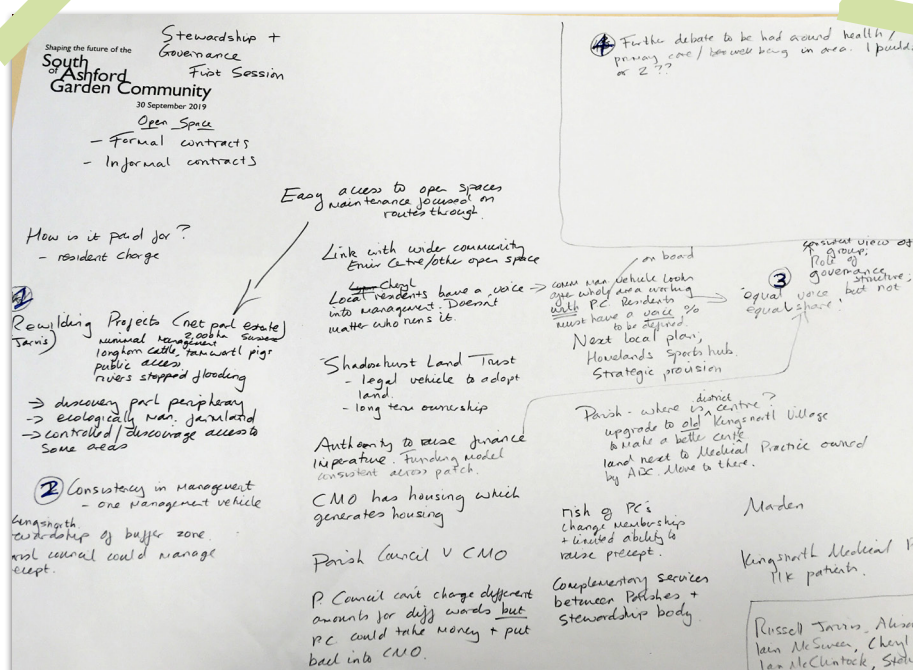 Stewardship +
Governance
First Session
Shaping the future of the
South
of Ashford
Garden Community
30 September 2019
Open Space
- Formal contracts
- Informal contracts
Easy access to open spaces
maintenance focused on
routes through.
How is it paid for?
- resident charge
1
Rewilding Projects (net part estate)
Jarvis)
minimal management 2,000ha Sussex
longhorn cattle, tamworth pigs
public access
rivers stopped flooding
→ discovery park periphery
→ ecologically man. farmland
→ controlled/discourage access to
some areas
2 Consistency in Management
- one management vehicle
Kingsnorth.
of buffer zone.
council could manage
Link with wider community
Centre/other open space
Cheryl
Local residents have a voice
into management. Doesn't
matter who runs it.
Shadoxhurst Land Trust
- legal vehicle to adopt
land.
- long term ownership
Authority to raise finance
imperative. Funding model
consistent across patch.
CMO has housing which
generates housing
Parish Council V CMO
P. Council can't change different
amounts for diff words but
P.C. could take money + put
back into CMO.
on board
→ comm man vehicle looks
after whole area working
with PC. Residents
must have a voice %
to be defined.
Next local plan;
Homelands Sports hub.
Strategic provision
Parish - where is district centre?
upgrade to old Kingsnorth Village
to make a better centre
land next to Medical Practice owned
by ABC. Move to there.
risk of PC's
change membership
+ limited ability to
raise precept.
Complementary services
between Parishes +
Stewardship body
4 Further debate to be had around health/
primary care/ being in area. 1 building
or 2??
consistent view of
group;
Role of
governance
structure;
3
equal voice but not
equal share!
Kingsnorth Medical P
11k patients.
Russell Jarvis, Aliso
Iain McSween, Cheryl
Ian McClintock,